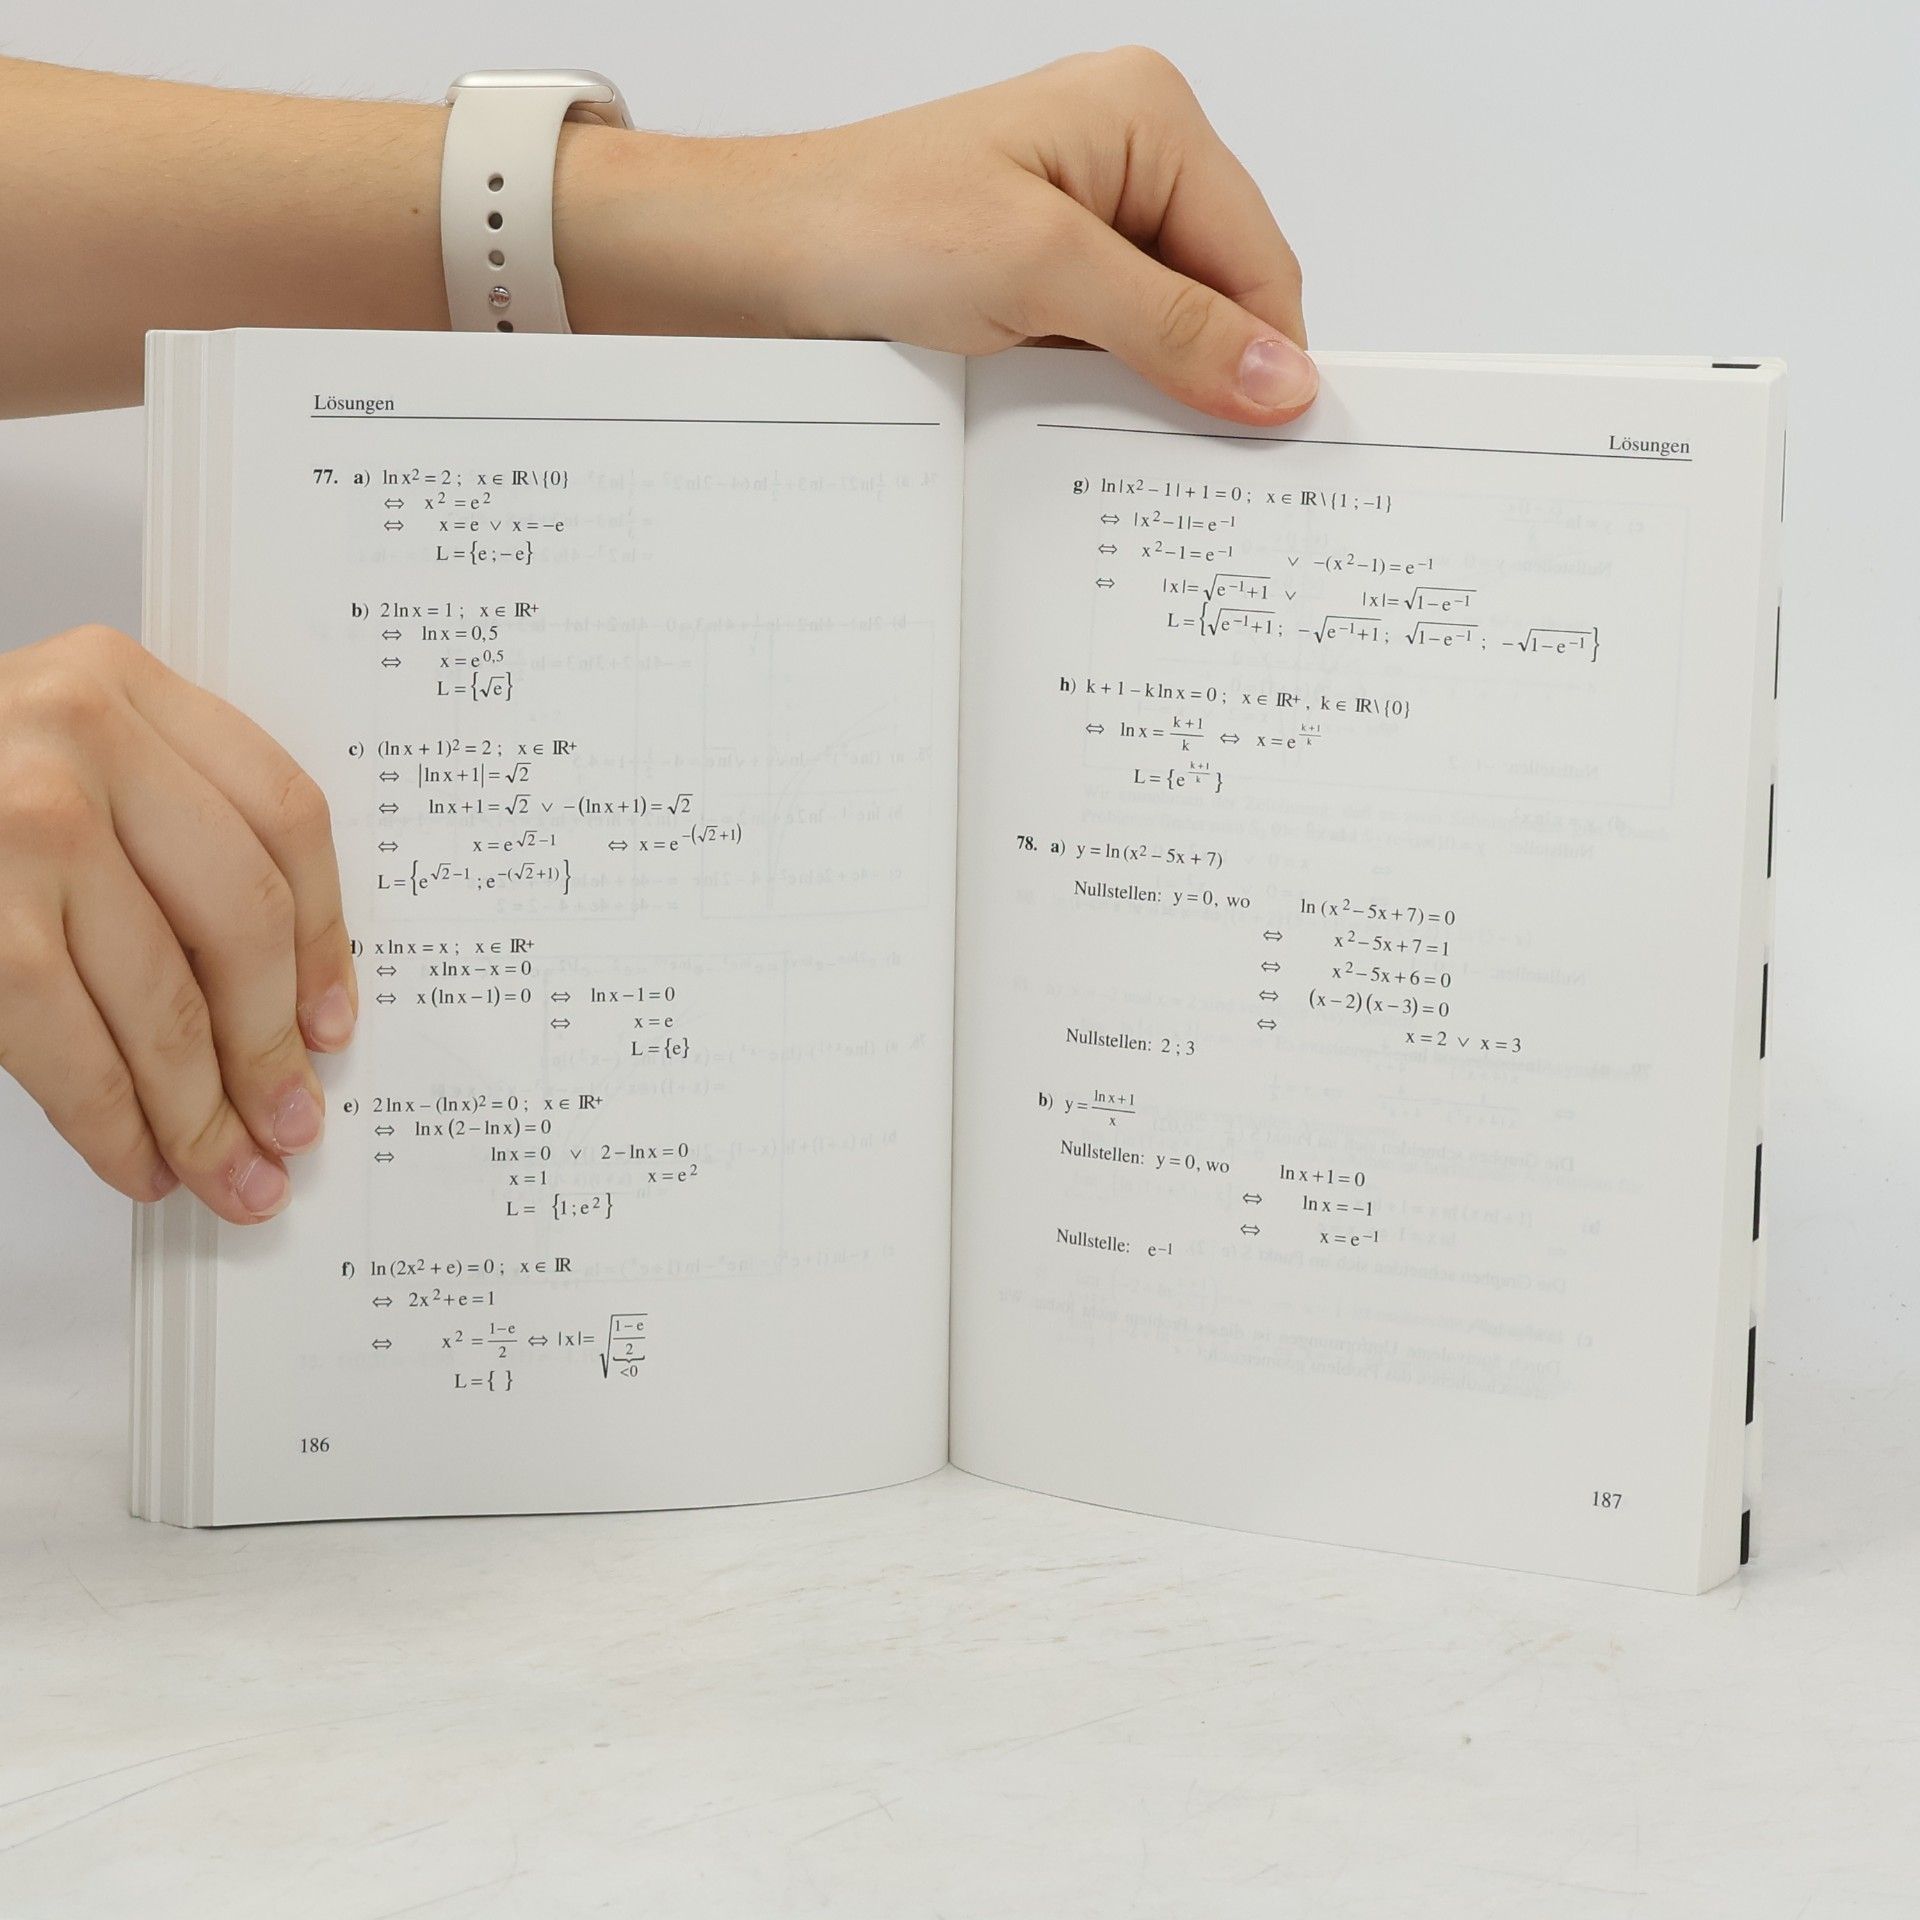 Lösungen
77. a) ln x² = 2 ; x ∈ ℝ \ {0}
⇔ x² = e²
⇔ x = e ∨ x = −e
L = {e ; − e}
b) 2 ln x = 1 ; x ∈ ℝ⁺
⇔ ln x = 0,5
⇔ x = e^0,5
L = {√e}
c) (ln x + 1)² = 2 ; x ∈ ℝ⁺
⇔ |ln x + 1| = √2
⇔ ln x + 1 = √2 ∨ −(ln x + 1) = √2
⇔ x = e^(√2−1) ⇔ x = e^(−(√2+1))
L = {e^(√2−1) ; e^(−(√2+1))}
) x ln x = x ; x ∈ ℝ⁺
⇔ x ln x − x = 0
⇔ x (ln x − 1) = 0 ⇔ ln x − 1 = 0
⇔ x = e
L = {e}
e) 2 ln x − (ln x)² = 0 ; x ∈ ℝ⁺
⇔ ln x (2 − ln x) = 0
⇔ ln x = 0 ∨ 2 − ln x = 0
x = 1 x = e²
L = {1 ; e²}
f) ln (2x² + e) = 0 ; x ∈ ℝ
⇔ 2x² + e = 1
⇔ x² = (1−e)/2 ⇔ |x| = √((1−e)/2) <0
L = { }
186
Lösungen
g) ln|x² − 1| + 1 = 0 ; x ∈ ℝ \ {1 ; −1}
⇔ |x² − 1| = e⁻¹
⇔ x² − 1 = e⁻¹ ∨ −(x² − 1) = e⁻¹
⇔ |x| = √(e⁻¹+1) ∨ |x| = √(1−e⁻¹)
L = {√(e⁻¹+1) ; −√(e⁻¹+1) ; √(1−e⁻¹) ; −√(1−e⁻¹)}
h) k + 1 − k ln x = 0 ; x ∈ ℝ⁺ , k ∈ ℝ \ {0}
⇔ ln x = (k+1)/k ⇔ x = e^((k+1)/k)
L = {e^((k+1)/k)}
78. a) y = ln (x² − 5x + 7)
Nullstellen: y = 0, wo ln (x² − 5x + 7) = 0
⇔ x² − 5x + 7 = 1
⇔ x² − 5x + 6 = 0
⇔ (x − 2) (x − 3) = 0
⇔ x = 2 ∨ x = 3
Nullstellen: 2 ; 3
b) y = (ln x + 1)/x
Nullstellen: y = 0, wo ln x + 1 = 0
⇔ ln x = −1
⇔ x = e⁻¹
Nullstelle: e⁻¹
187